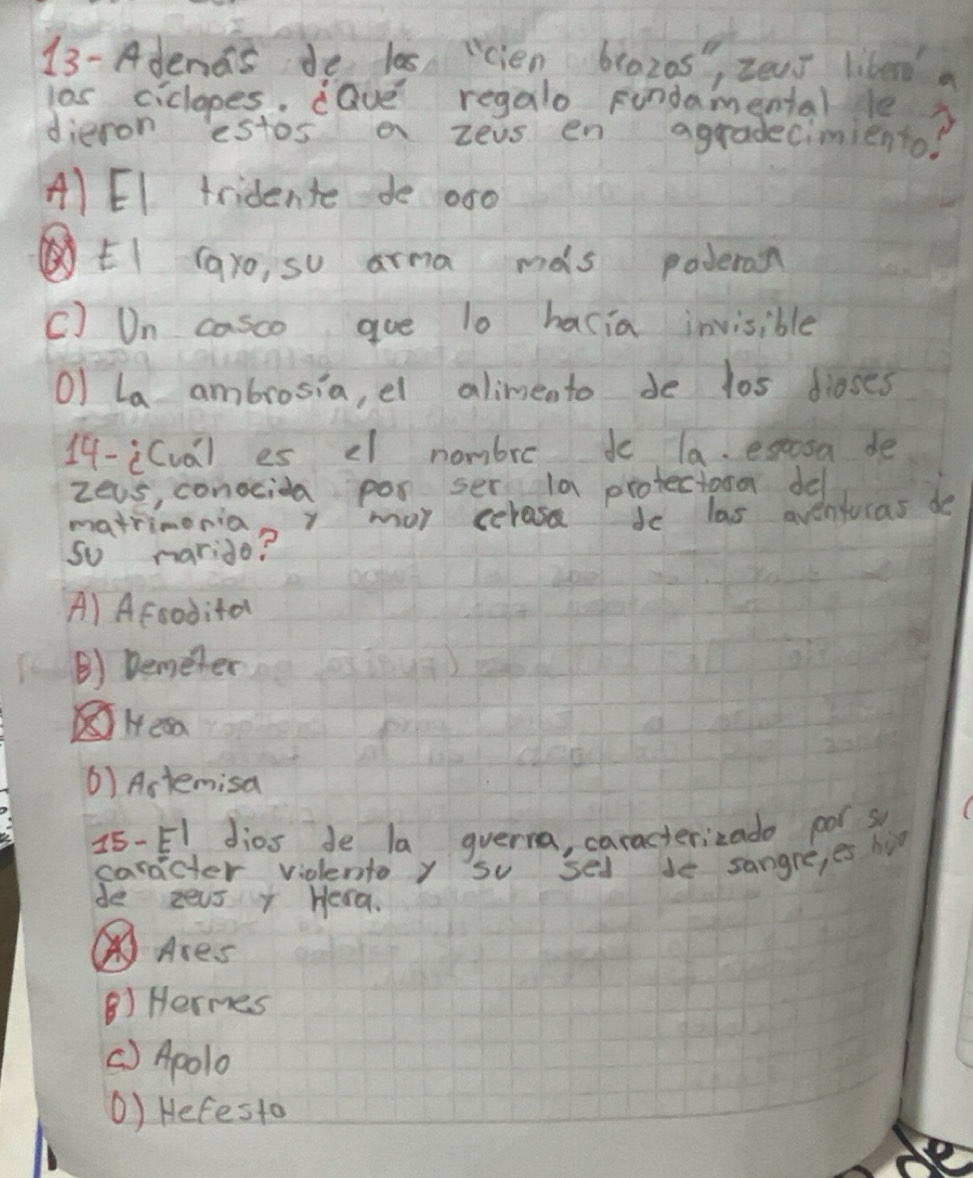 13- Ademas de los "cien brazos", zeus liberó a
los cíclopes. ¿Qué regalo fundamental le
dieron estos a zeus en agradecimiento?
A) El tridente de oro
B) El rayo, su arma más
C) Un casco que lo hacía invisible
D) La ambrosía, el alimento de los dioses
14- ¿Cuál es el nombre de la esposa de
zeus, conocida por ser la protectora del
matrimonia y muy celosa de las aventuras de
su marido?
A) Afrodita
B) Deméter
C) Hera
D) Artemisa
15- El dios de la guerra, caracterizado por su
carácter violento y su sed de sangre, es hijo
de zeus y Hera.
A) Ares
B) Hermes
C) Apolo
D) Hefesto
de